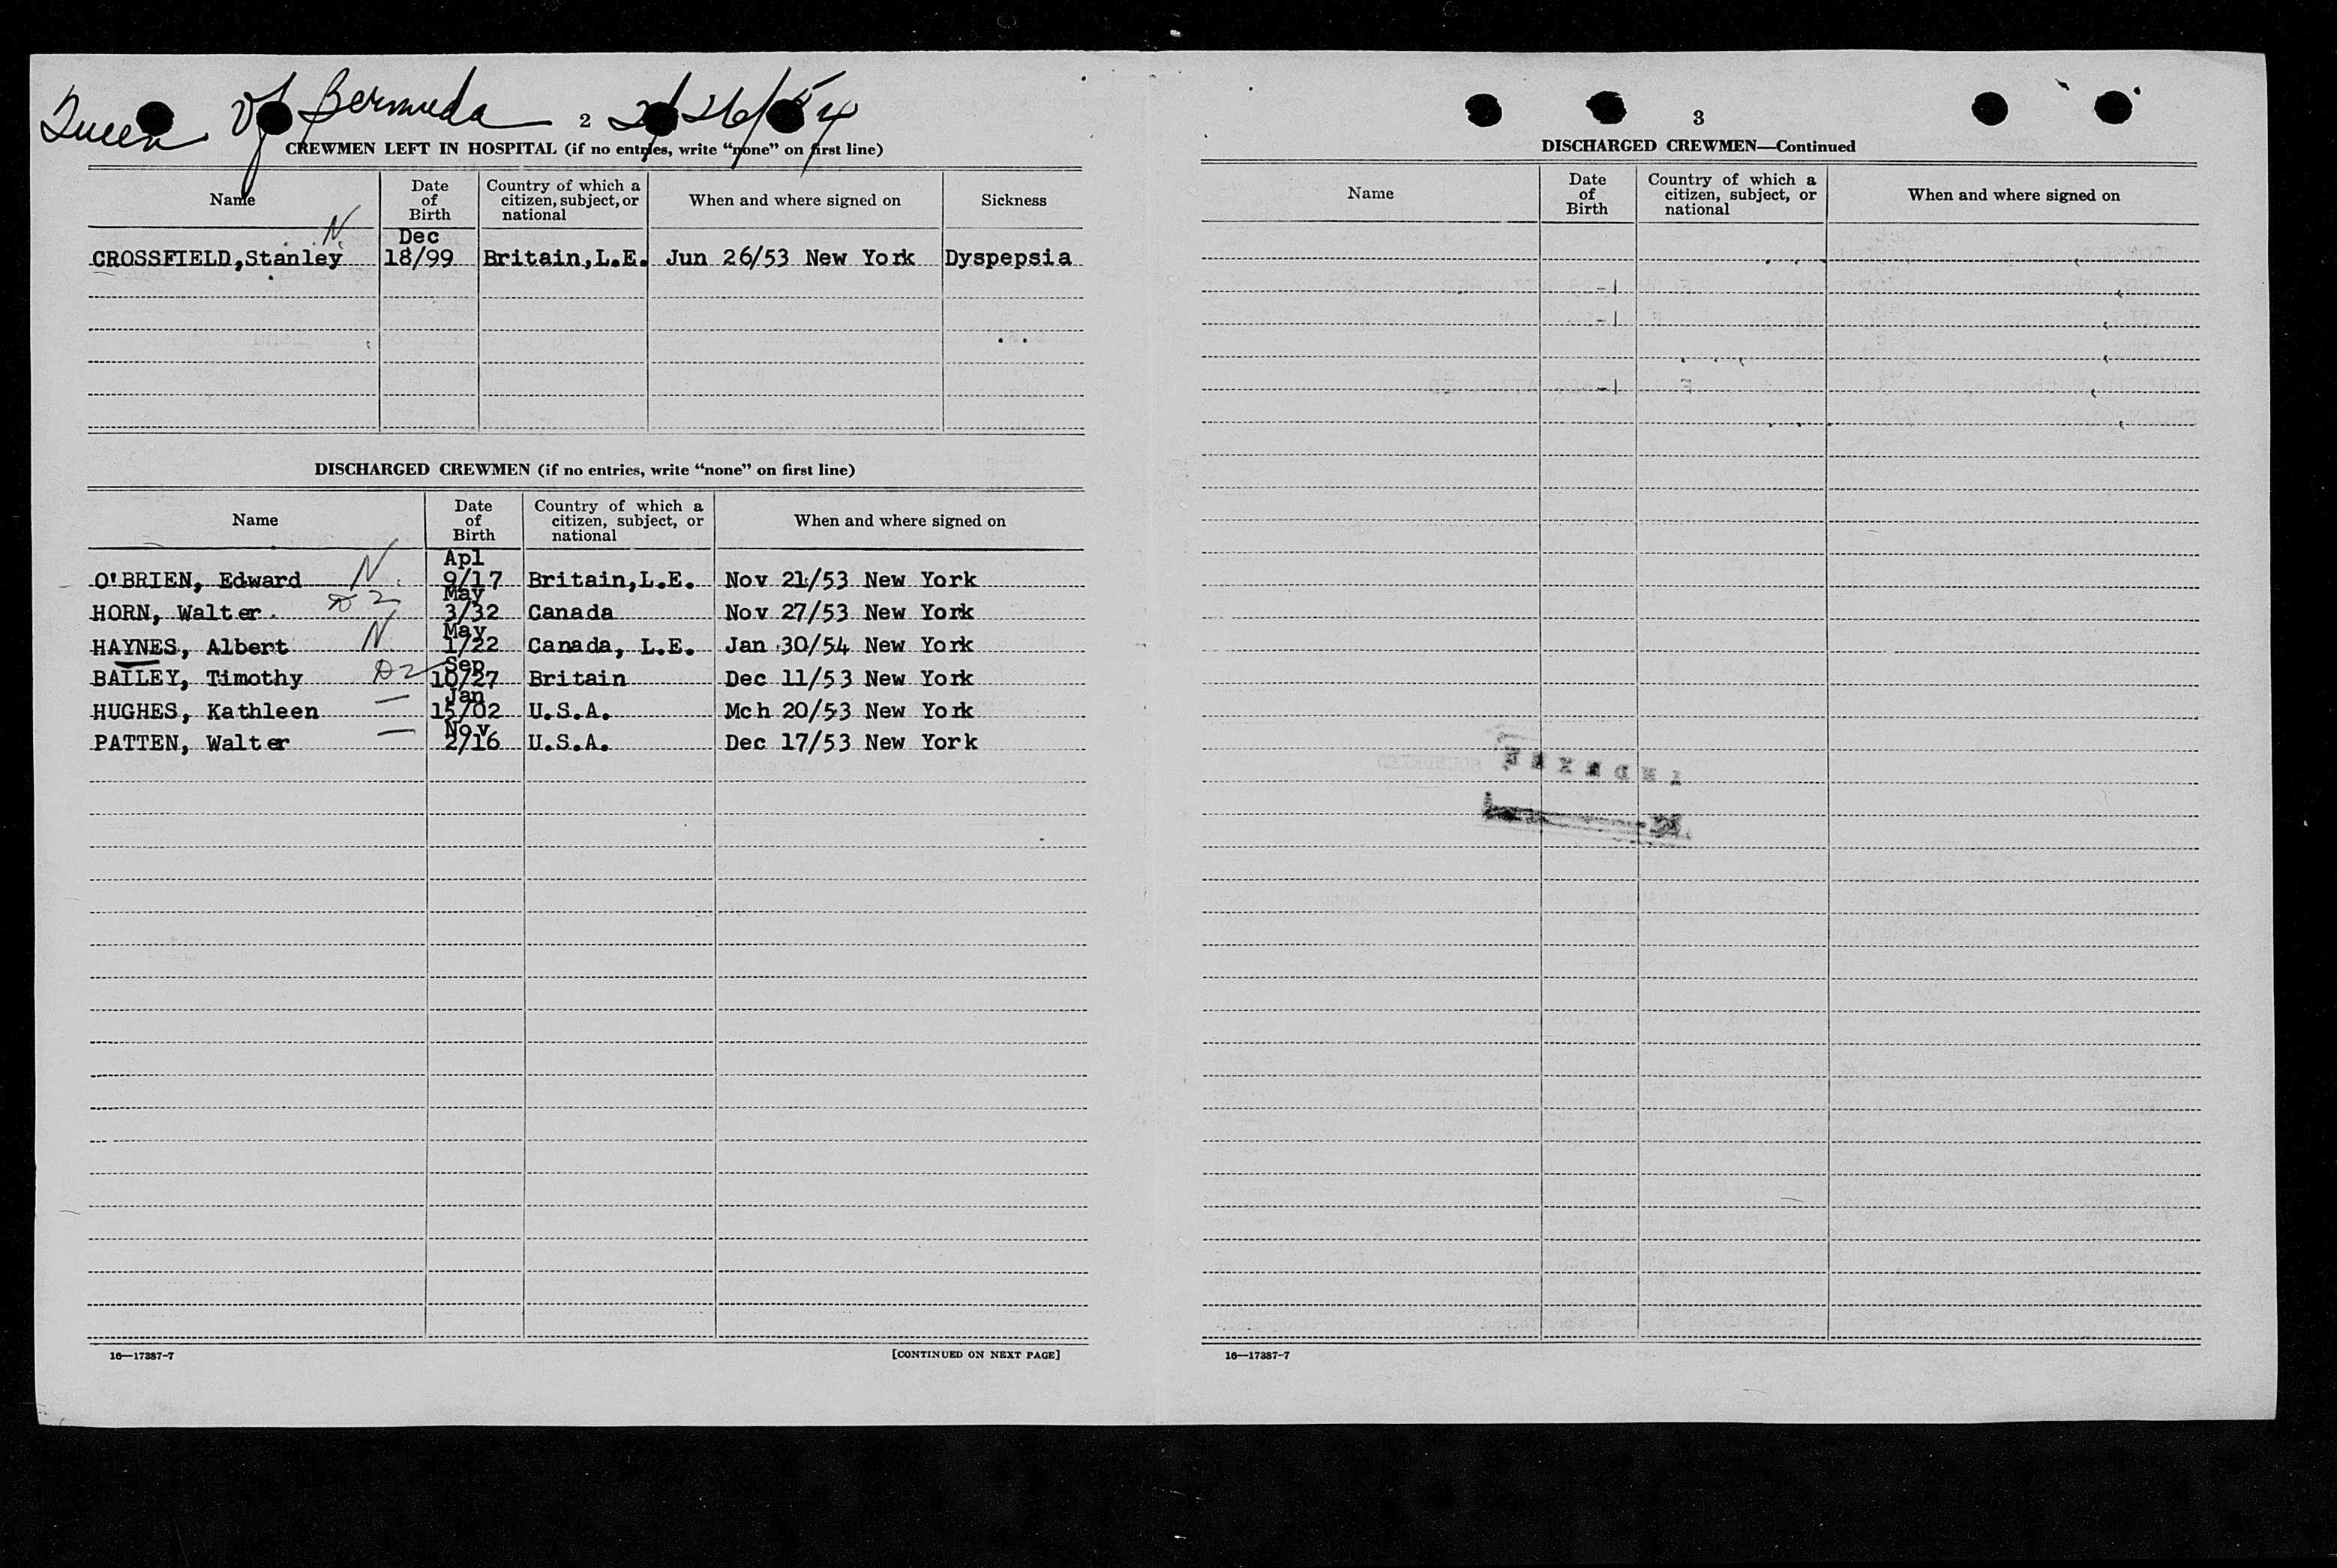 Queen of Bermuda 2 2/26/54
CREWMEN LEFT IN HOSPITAL (if no entries, write "none" on first line)
Name Date of Birth Country of which a citizen, subject, or national When and where signed on Sickness
N
CROSSFIELD, Stanley Dec 18/99 Britain, L.E. Jun 26/53 New York Dyspepsia
DISCHARGED CREWMEN (if no entries, write "none" on first line)
Name Date of Birth Country of which a citizen, subject, or national When and where signed on
O'BRIEN, Edward N. Apl 9/17 Britain, L.E. Nov 21/53 New York
HORN, Walter D2 May 3/32 Canada Nov 27/53 New York
HAYNES, Albert N May 1/22 Canada, L.E. Jan 30/54 New York
BAILEY, Timothy D2 Sep 10/27 Britain Dec 11/53 New York
HUGHES, Kathleen — Jan 15/02 U.S.A. Mch 20/53 New York
PATTEN, Walter — Nov 2/16 U.S.A. Dec 17/53 New York
16—17387-7 [CONTINUED ON NEXT PAGE]
3
DISCHARGED CREWMEN—Continued
Name Date of Birth Country of which a citizen, subject, or national When and where signed on
16—17387-7